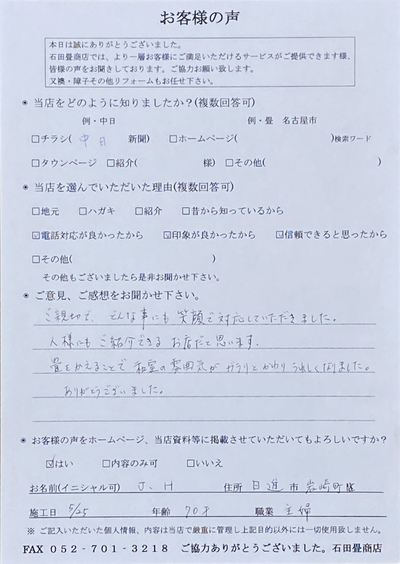 お客様の声
本日は誠にありがとうございました。
石田畳商店では、より一層お客様にご満足いただけるサービスがご提供できます様、
皆様の声をお聞きしております。ご協力お願い致します。
又襖・障子その他リフォームもお任せ下さい。
※ 当店をどのように知りましたか?(複数回答可)
例・中日 例・畳 名古屋市
□チラシ( 中日 新聞) □ホームページ( )検索ワード
□タウンページ □紹介( 様) □その他( )
※ 当店を選んでいただいた理由(複数回答可)
□地元 □ハガキ □紹介 □昔から知っているから
☑電話対応が良かったから ☑印象が良かったから ☑信頼できると思ったから
□その他( )
その他もございましたら是非お聞かせ下さい。
※ ご意見、ご感想をお聞かせ下さい。
ご親切で、どんな事にも笑顔で対応していただきました。
人様にもご紹介できるお店だと思います。
畳をかえることで和室の雰囲気がガラリとかわりうれしくなりました。
ありがとうございました。
※ お客様の声をホームページ、当店資料等に掲載させていただいてもよろしいですか?
☑はい □内容のみ可 □いいえ
お名前(イニシャル可) J.H 住所 日進市岩崎町
施工日 5/25 年齢 70才 職業 主婦
※ ご記入いただいた個人情報、内容は当店で厳重に管理し上記目的以外には一切使用致しません。
FAX 052-701-3218 ご協力ありがとうございました。石田畳商店